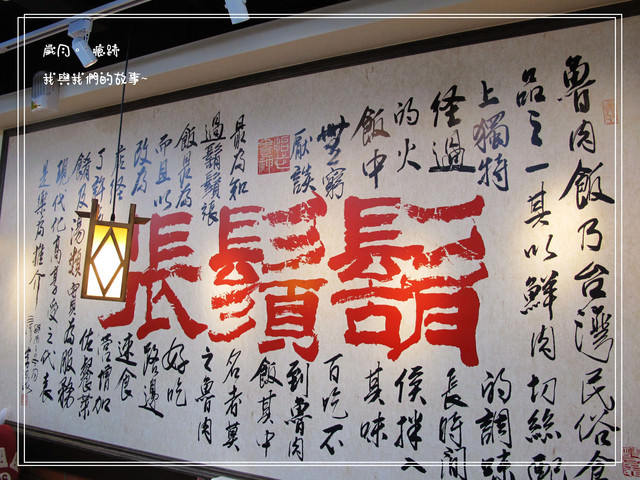 歲月。痕跡
我與我們的故事~
魯肉飯乃台灣民俗食
品之一其以鮮肉切絲配
上獨特的調味
経過長時間
的火侯拌入
飯中其味
無窮百吃不
厭談到魯肉
飯其中
最為知名者莫
過鬍鬚張之魯肉
飯最為好吃
而且以路邊
改為速食
営增加
了許佐餐菜
餚及湯類實為服務
現代化高享受之代表
推介
鬍鬚張